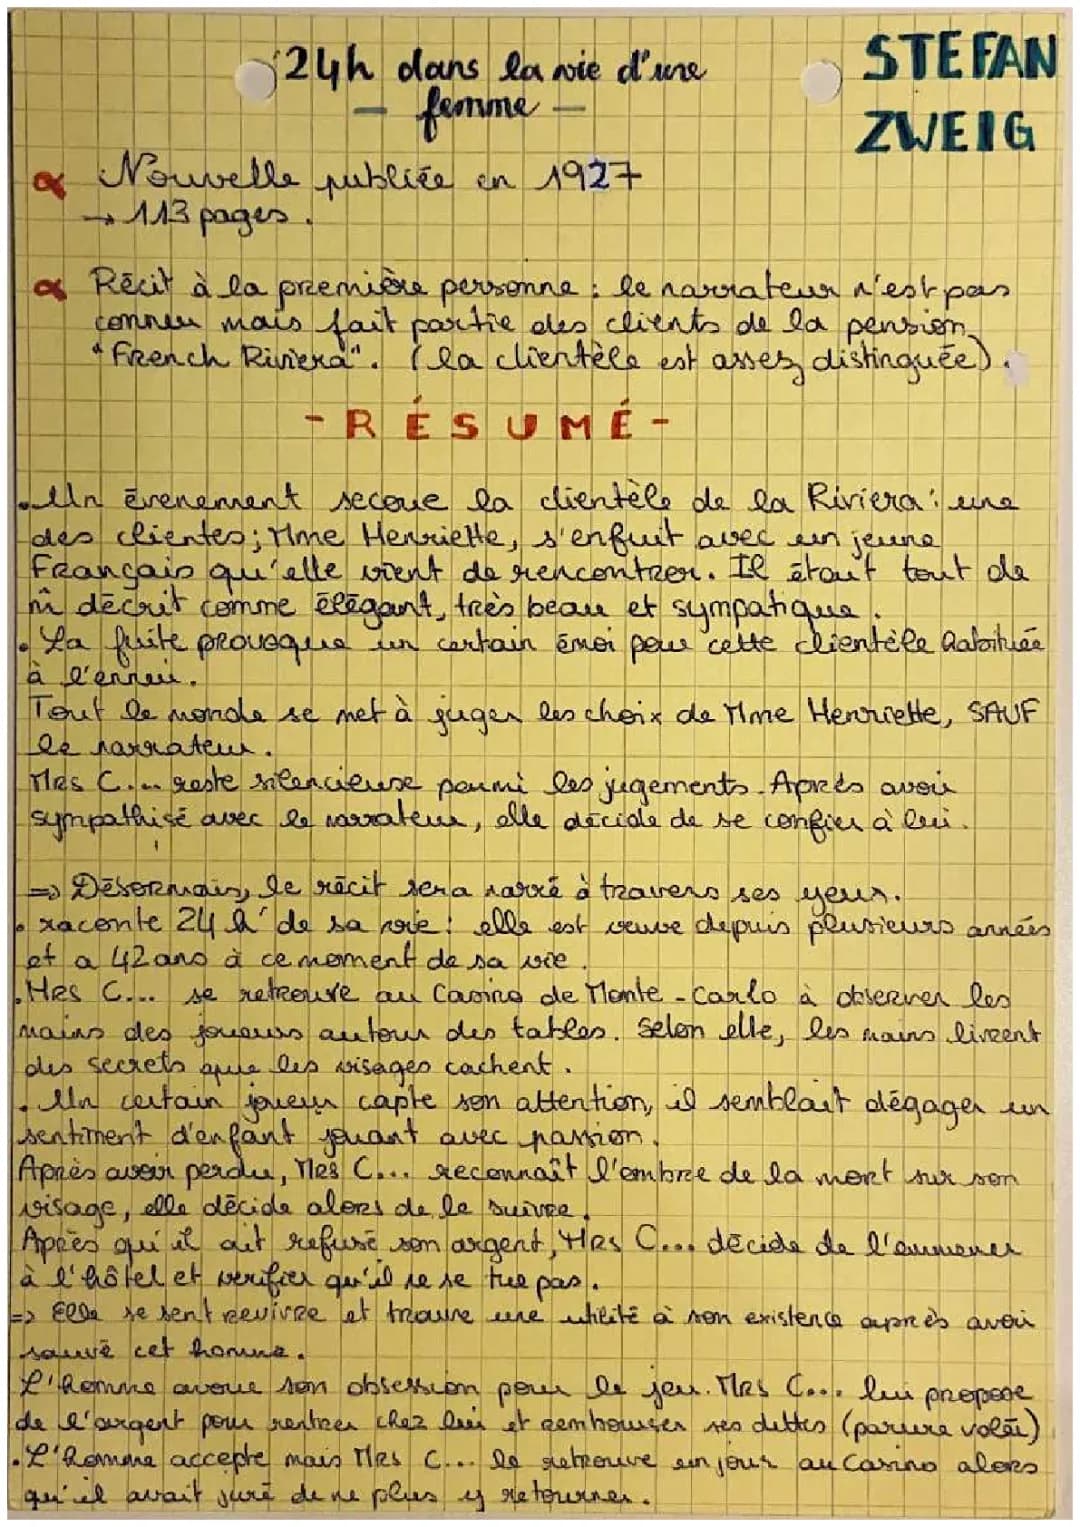 24h dans la vie d'une
- femme -
STEFAN
ZWEIG
∝ Nouvelle publiée en 1927
→ 113 pages.
∝ Récit à la première personne : le narrateur n'est pas
connu mais fait partie des clients de la pension
"French Riviera". (la clientèle est assez distinguée).
- RÉSUMÉ -
• Un évenement secoue la clientèle de la Riviera : une
des clientes; Mme Henriette, s'enfuit avec un jeune
Français qu'elle vient de rencontrer. Il était tout de
m̂ décrit comme élégant, très beau et sympatique.
• La fuite provoque un certain émoi pour cette clientèle habituée
à l'ennui.
Tout le monde se met à juger les choix de Mme Henriette, SAUF
le narrateur.
Mrs C... reste silencieuse parmi les jugements. Après avoir
sympathisé avec le narrateur, elle décide de se confier à lui.
=> Désormais, le récit sera narré à travers ses yeux.
• raconte 24 h de sa vie : elle est veuve depuis plusieurs années
et a 42 ans à ce moment de sa vie.
• Mrs C... se retrouve au Casino de Monte-Carlo à observer les
mains des joueurs autour des tables. Selon elle, les mains livrent
des secrets que les visages cachent.
• Un certain joueur capte son attention, il semblait dégager un
sentiment d'enfant jouant avec passion.
Après avoir perdu, Mrs C... reconnaît l'ombre de la mort sur son
visage, elle décide alors de le suivre.
Après qu'il ait refusé son argent, Mrs C... décide de l'emmener
à l'hôtel et verifier qu'il ne se tue pas.
=> Elle se sent revivre et trouve une utilité à son existence après avoir
sauvé cet homme.
L'homme avoue son obsession pour le jeu. Mrs C... lui propose
de l'argent pour rentrer chez lui et rembourser ses dettes (parure volée)
• L'homme accepte mais Mrs C... le retrouve un jour au Casino alors
qu'il avait juré de ne plus y retourner.